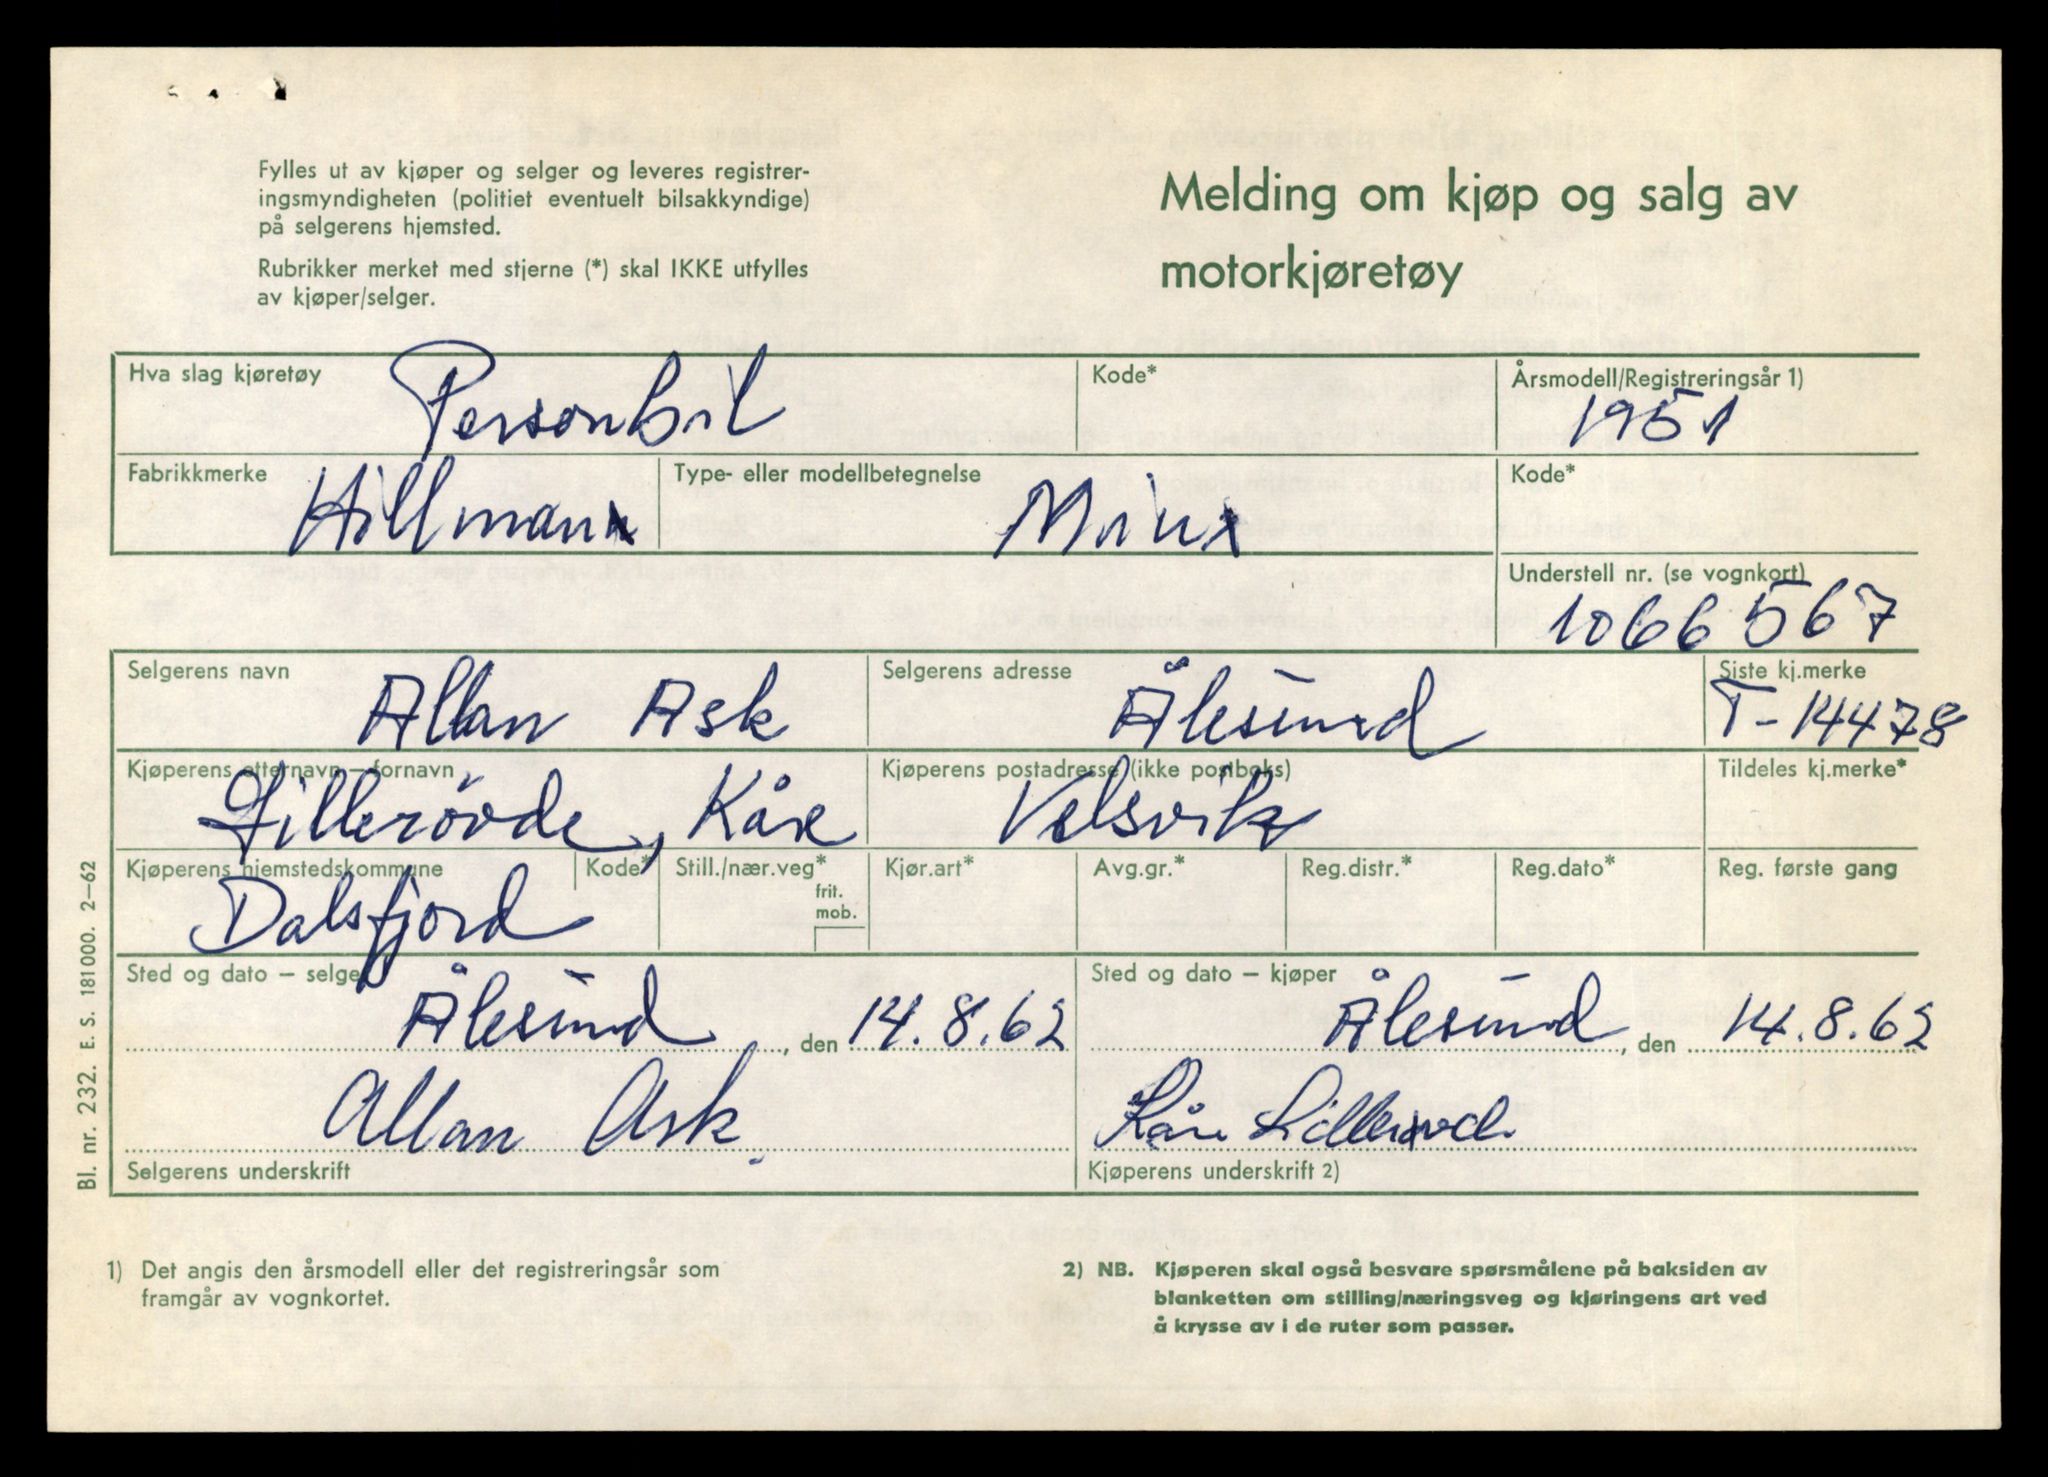 Fylles ut av kjøper og selger og leveres registrer-
ingsmyndigheten (politiet eventuelt bilsakkyndige)
på selgerens hjemsted.
Rubrikker merket med stjerne (*) skal IKKE utfylles
av kjøper/selger.
Melding om kjøp og salg av
motorkjøretøy
Hva slag kjøretøy Personbil
Kode*
Årsmodell/Registreringsår 1) 1951
Fabrikkmerke Hillman
Type- eller modellbetegnelse Minx
Kode*
Understell nr. (se vognkort) 1066567
Selgerens navn Allan Ask
Selgerens adresse Ålesund
Siste kj.merke T-14478
Kjøperens etternavn – fornavn Lillerøvde, Kåre
Kjøperens postadresse (ikke postboks) Velsvik
Tildeles kj.merke*
Kjøperens hjemstedskommune Dalsfjord
Kode*
Still./nær.veg*
frit.
mob.
Kjør.art*
Avg.gr.*
Reg.distr.*
Reg.dato*
Reg. første gang
Sted og dato – selger
Ålesund, den 14.8.62
Allan Ask
Selgerens underskrift
Sted og dato – kjøper
Ålesund, den 14.8.62
Kåre Lillerøvde
Kjøperens underskrift 2)
Bl. nr. 232. E. S. 181000. 2–62
1) Det angis den årsmodell eller det registreringsår som
framgår av vognkortet.
2) NB. Kjøperen skal også besvare spørsmålene på baksiden av
blanketten om stilling/næringsveg og kjøringens art ved
å krysse av i de ruter som passer.